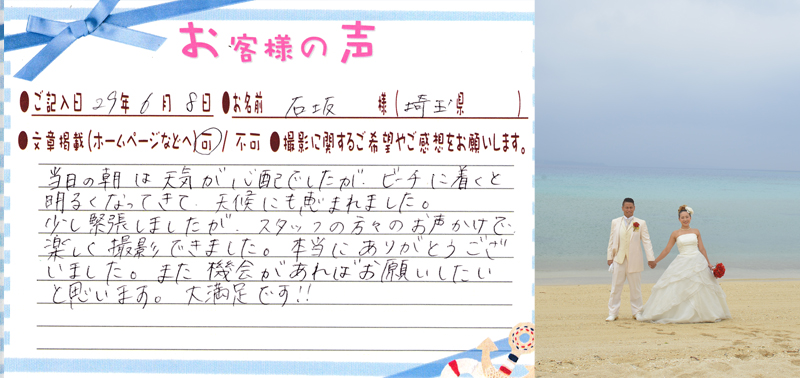 お客様の声
●ご記入日 29年 6月 8日 ●お名前 石坂 様(埼玉県 )
●文章掲載(ホームページなどへ)可/不可 ●撮影に関するご希望やご感想をお願いします。
当日の朝は天気が心配でしたが、ビーチに着くと
明るくなってきて、天候にも恵まれました。
少し緊張しましたが、スタッフの方々のお声かけで、
楽しく撮影できました。本当にありがとうござ
いました。また機会があればお願いしたい
と思います。大満足です!!